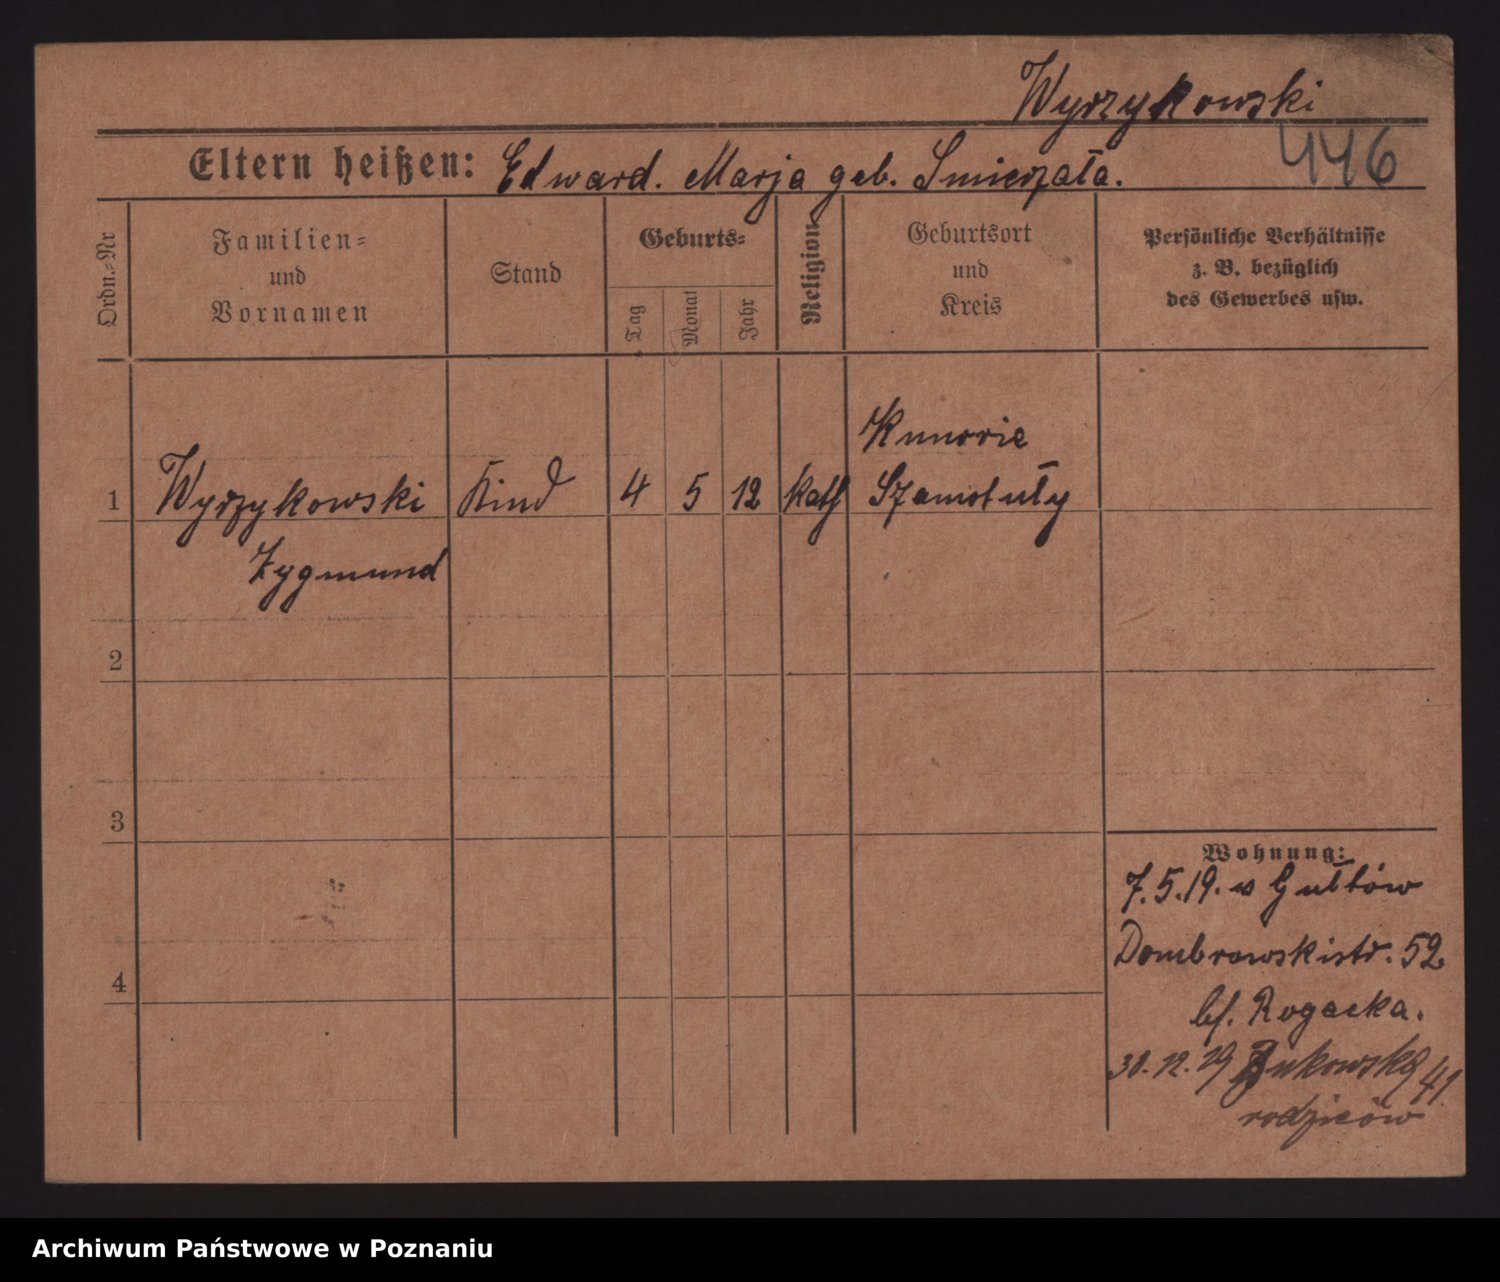 Wyrzykowski
446
Eltern heißen: Edward. Marja geb. Smierzała.
Ordn.-Nr
Familien- und Vornamen
Stand
Geburts-
Tag
Monat
Jahr
Religion
Geburtsort und Kreis
Persönliche Verhältnisse
z. B. bezüglich
des Gewerbes usw.
Kunowie
1 Wyrzykowski Kind 4 5 12 kath Szamotuły
Zygmund
2
3
4
Wohnung:
7.5.19. w Gułtów
Dombrowskistr. 52
bf. Rogacka.
30.12.19 Bukowska 41.
rodziców
Archiwum Państwowe w Poznaniu